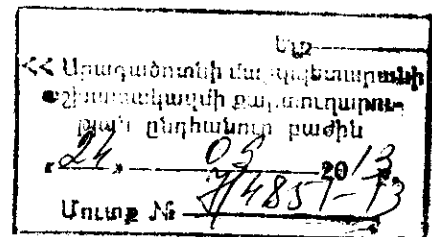 Ելք
ՀՀ Արագածոտնի մարզպետարանի
աշխատակազմի քարտուղարու-
թյան ընդհանուր բաժին
«24» 05 2013
Մուտք № 7/4851-13